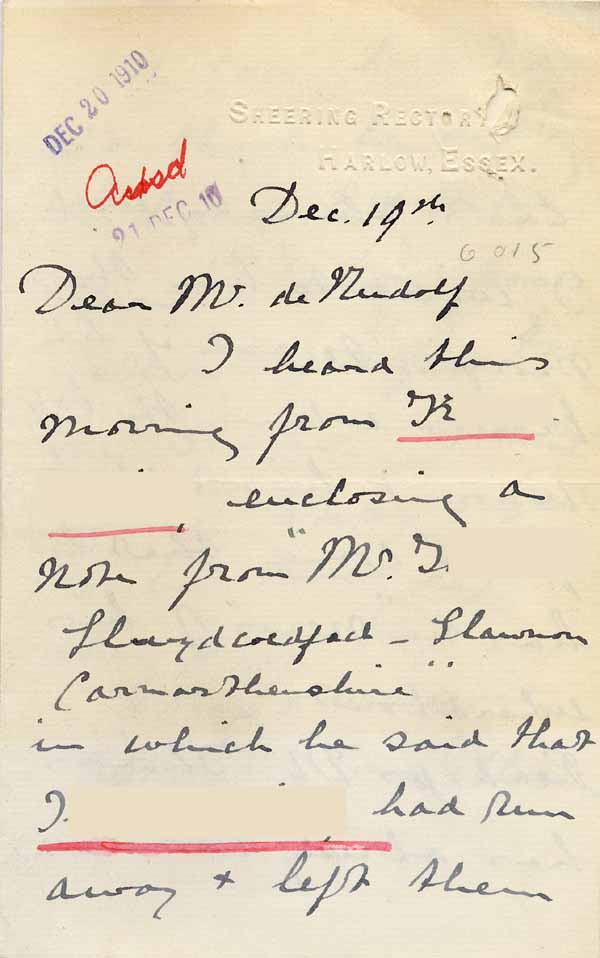 DEC 20 1910
SHEERING RECTORY
HARLOW, ESSEX.
21 DEC 10
Dec. 19th
6015
Dear Mr. de Rudolf
I heard this
morning from
, enclosing a
note from "Mr. J.
Carmarthenshire"
in which he said that
had run
away + left them